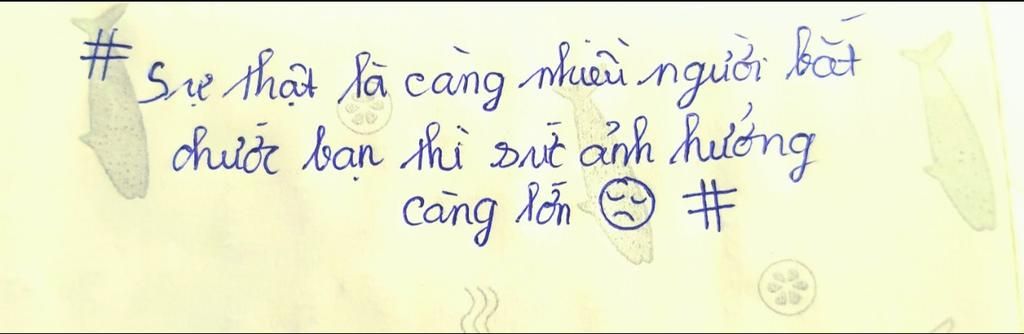 # Sự thật là càng nhiều người bắt
chước bạn thì sức ảnh hưởng
càng lớn 😔 #